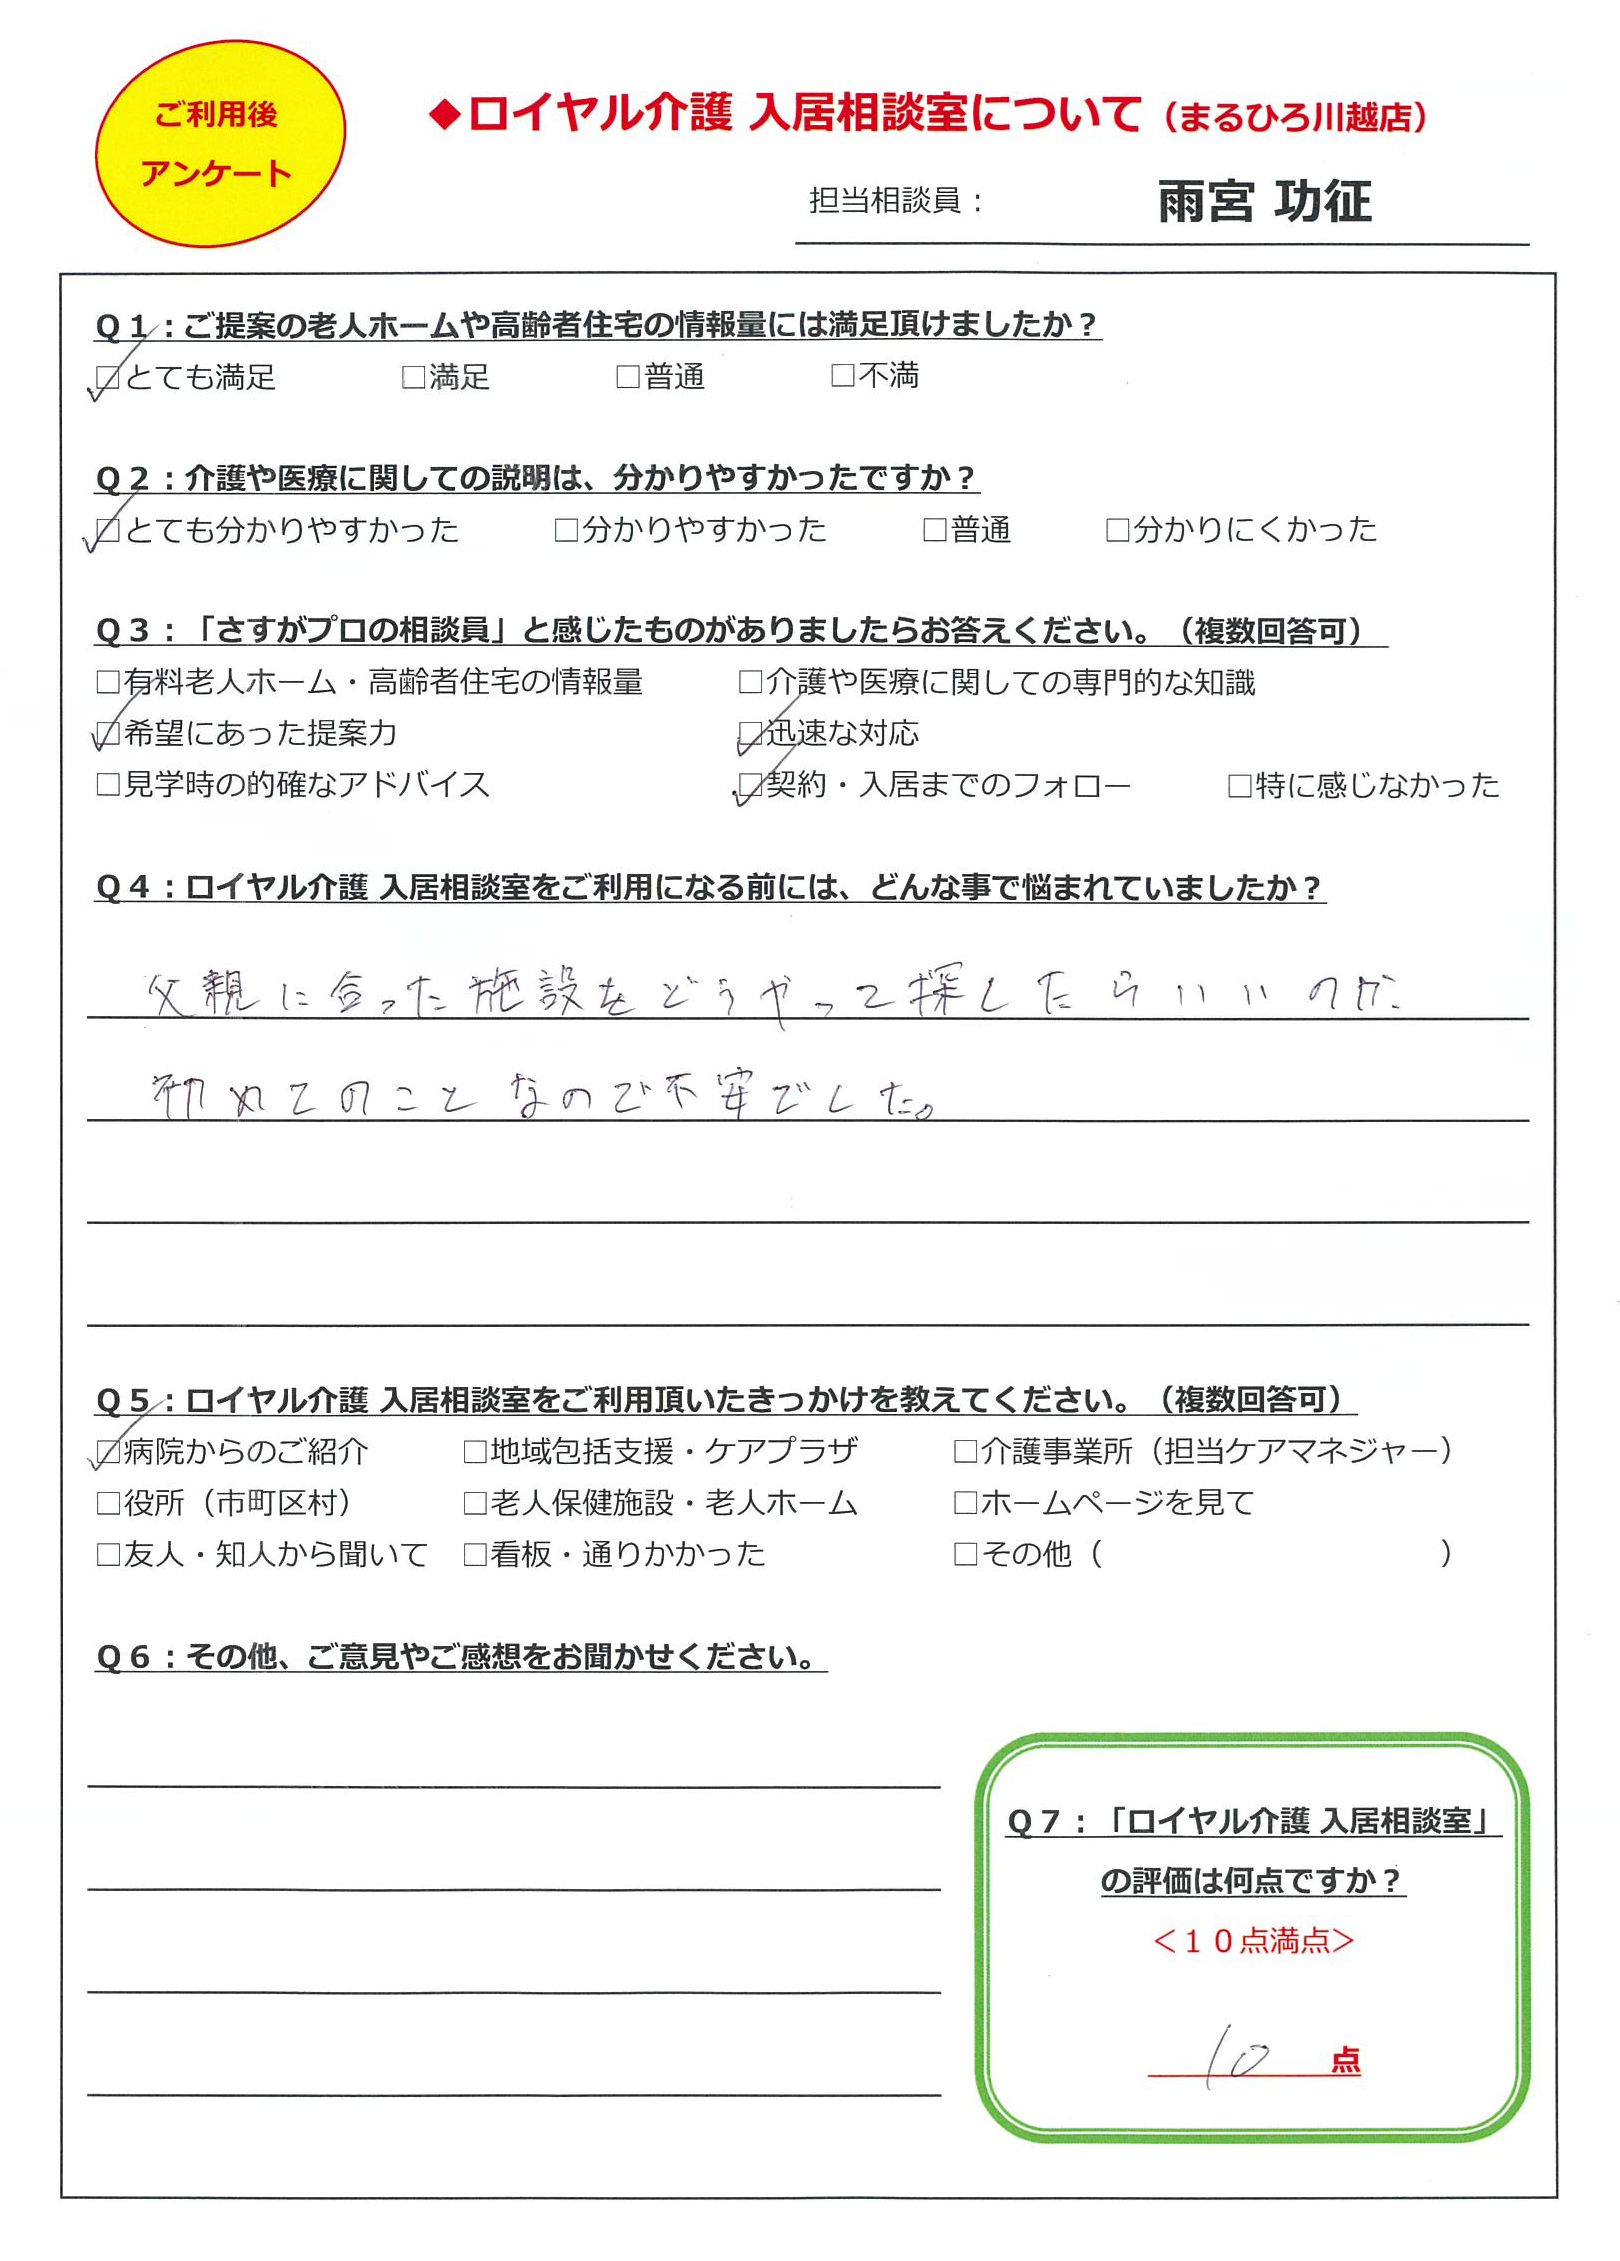 ご利用後
アンケート
◆ロイヤル介護 入居相談室について（まるひろ川越店）
担当相談員： 雨宮 功征
Q１：ご提案の老人ホームや高齢者住宅の情報量には満足頂けましたか？
☑とても満足 □満足 □普通 □不満
Q２：介護や医療に関しての説明は、分かりやすかったですか？
☑とても分かりやすかった □分かりやすかった □普通 □分かりにくかった
Q３：「さすがプロの相談員」と感じたものがありましたらお答えください。（複数回答可）
□有料老人ホーム・高齢者住宅の情報量 □介護や医療に関しての専門的な知識
☑希望にあった提案力 ☑迅速な対応
□見学時の的確なアドバイス ☑契約・入居までのフォロー □特に感じなかった
Q４：ロイヤル介護 入居相談室をご利用になる前には、どんな事で悩まれていましたか？
父親に合った施設をどうやって探したらいいのか
初めてのことなので不安でした。
Q５：ロイヤル介護 入居相談室をご利用頂いたきっかけを教えてください。（複数回答可）
☑病院からのご紹介 □地域包括支援・ケアプラザ □介護事業所（担当ケアマネジャー）
□役所（市町区村） □老人保健施設・老人ホーム □ホームページを見て
□友人・知人から聞いて □看板・通りかかった □その他（ ）
Q６：その他、ご意見やご感想をお聞かせください。
Q７：「ロイヤル介護 入居相談室」
の評価は何点ですか？
＜１０点満点＞
10 点